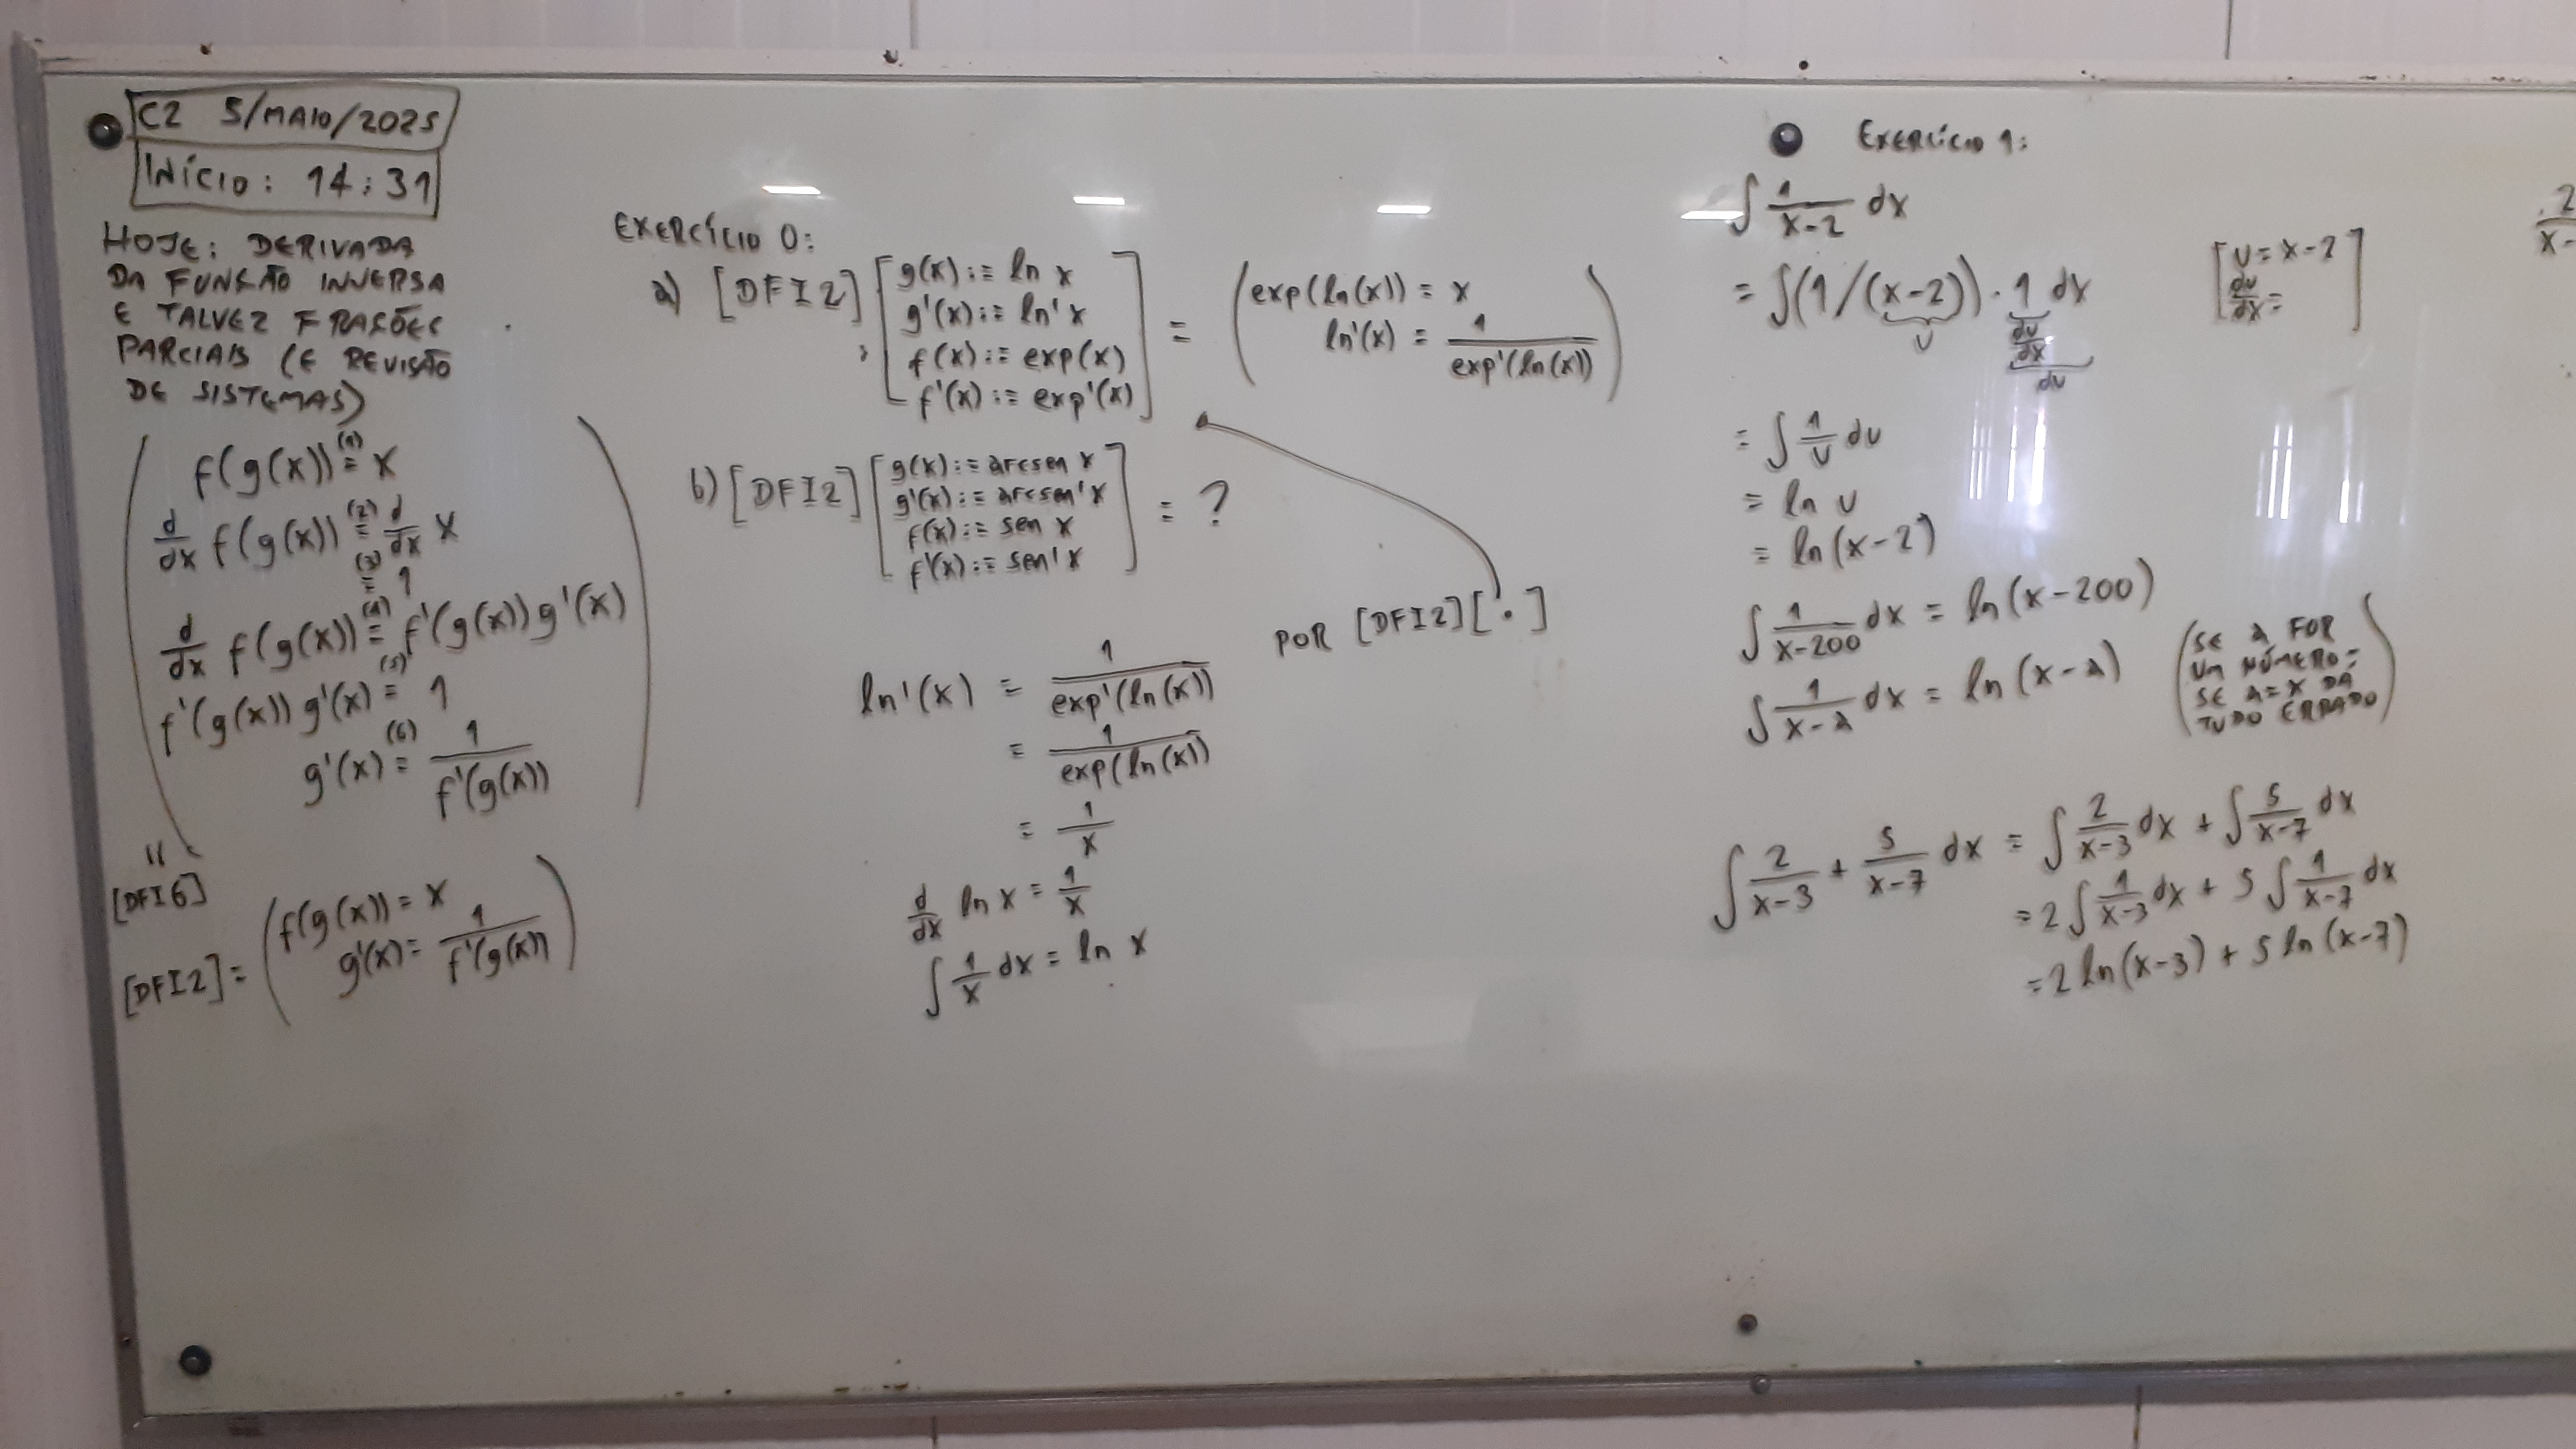 C2 5/MAIO/2025
INÍCIO: 14:31
HOJE: DERIVADA
DA FUNÇÃO INVERSA
E TALVEZ FRAÇÕES
PARCIAIS (E REVISÃO
DE SISTEMAS)
f(g(x)) (1)= x
d/dx f(g(x)) (2)= d/dx x
(3)= 1
d/dx f(g(x)) (4)= f'(g(x))g'(x)
f'(g(x))g'(x) (5)= 1
g'(x) (6)= 1/f'(g(x))
"
[DFI6]
[DFI2] = (f(g(x)) = x
g'(x) = 1/f'(g(x)))
EXERCÍCIO 0:
a) [DFI2] [g(x) := ln x
g'(x) := ln' x
f(x) := exp(x)
f'(x) := exp'(x)]
= (exp(ln(x)) = x
ln'(x) = 1/exp'(ln(x)))
b) [DFI2] [g(x) := arcsen x
g'(x) := arcsen' x
f(x) := sen x
f'(x) := sen' x] = ?
POR [DFI2][·]
ln'(x) = 1/exp'(ln(x))
= 1/exp(ln(x))
= 1/x
d/dx ln x = 1/x
∫ 1/x dx = ln x
EXERCÍCIO 1:
∫ 1/(x-2) dx
= ∫(1/(x-2)) · 1 dx
u du/dx du
[u = x-2
du/dx = ]
= ∫ 1/u du
= ln u
= ln(x-2)
∫ 1/(x-200) dx = ln(x-200)
∫ 1/(x-a) dx = ln(x-a)
(SE a FOR
UM NÚMERO;
SE a=x DÁ
TUDO ERRADO)
∫ 2/(x-3) + 5/(x-7) dx = ∫ 2/(x-3) dx + ∫ 5/(x-7) dx
= 2∫ 1/(x-3) dx + 5∫ 1/(x-7) dx
= 2 ln(x-3) + 5 ln(x-7)
2/x-